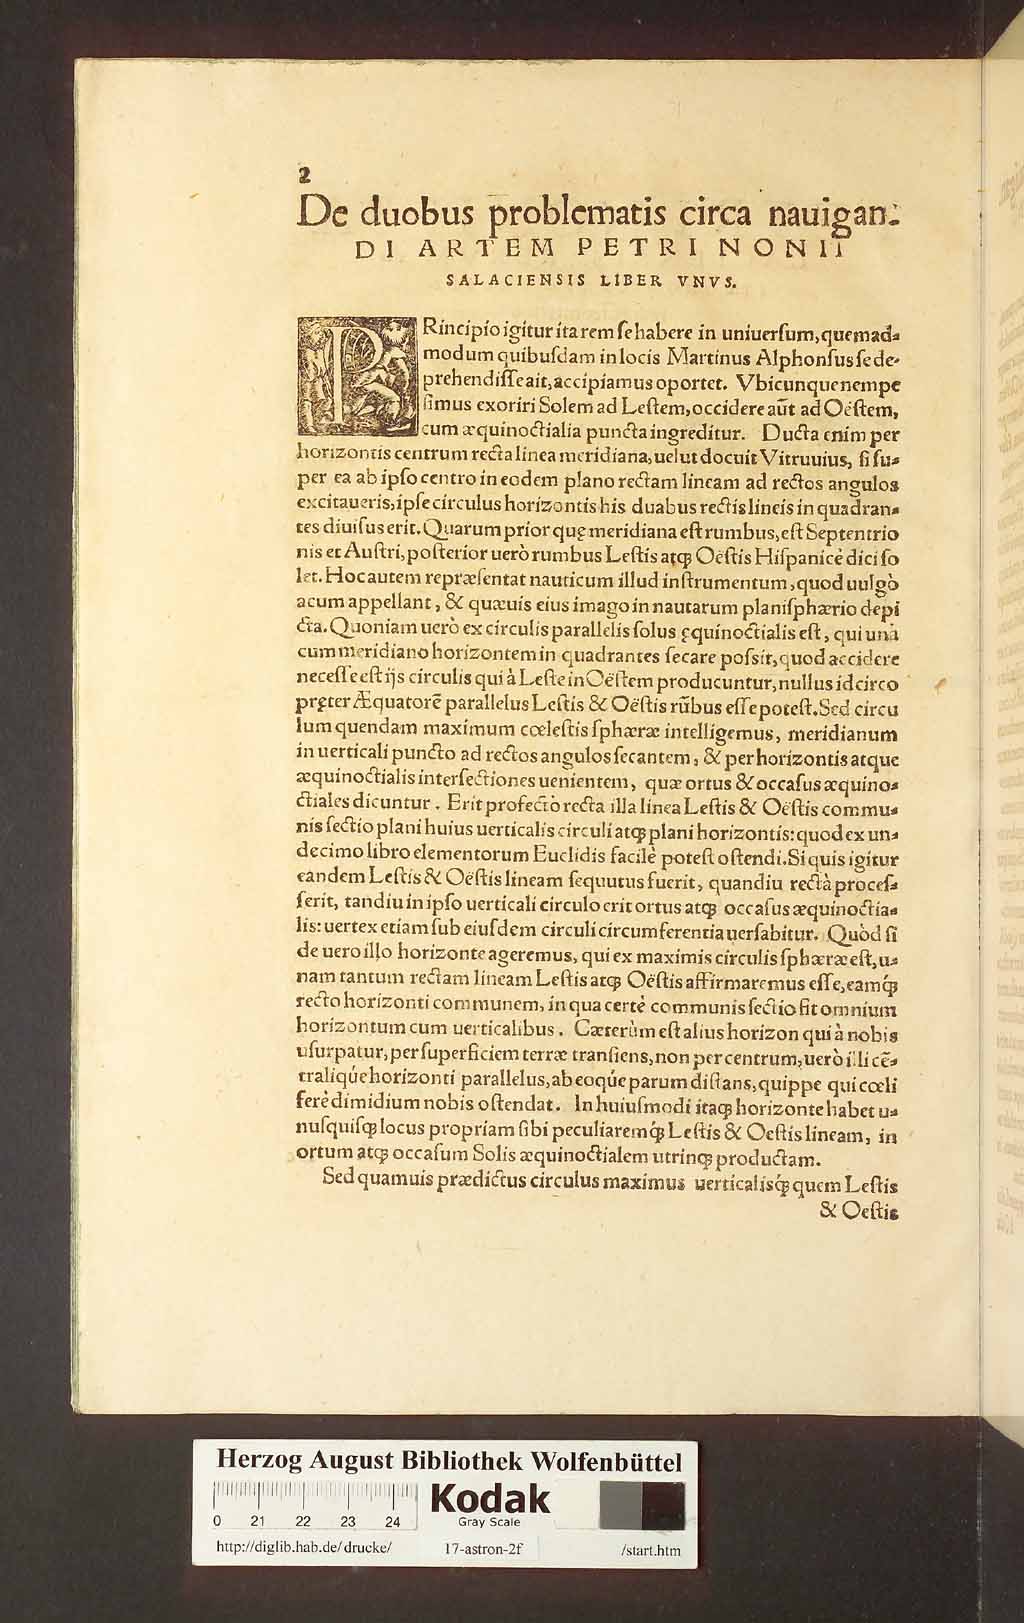 2
De duobus problematis circa nauigan-
DI ARTEM PETRI NONII
SALACIENSIS LIBER VNVS.
PRincipio igitur ita rem ſe habere in uniuerſum, quemad-
modum quibuſdam in locis Martinus Alphonſus ſe de-
prehendiſſe ait, accipiamus oportet. Vbicunque nempe
ſimus exoriri Solem ad Leſtem, occidere aūt ad Oëſtem,
cum æquinoctialia puncta ingreditur. Ducta enim per
horizontis centrum recta linea meridiana, uelut docuit Vitruuius, ſi ſu-
per ea ab ipſo centro in eodem plano rectam lineam ad rectos angulos
excitaueris, ipſe circulus horizontis his duabus rectis lineis in quadran-
tes diuiſus erit. Quarum prior quę meridiana eſt rumbus, eſt Septentrio
nis et Auſtri, poſterior uerò rumbus Leſtis atq; Oëſtis Hiſpanicè dici ſo
let. Hoc autem repræſentat nauticum illud inſtrumentum, quod uulgò
acum appellant, & quæuis eius imago in nautarum planiſphærio depi
cta. Quoniam uerò ex circulis parallelis ſolus ęquinoctialis eſt, qui unà
cum meridiano horizontem in quadrantes ſecare poſsit, quod accidere
neceſſe eſt ijs circulis qui à Leſte in Oëſtem producuntur, nullus idcirco
pręter Æquatorē parallelus Leſtis & Oëſtis rūbus eſſe poteſt. Sed circu
lum quendam maximum cœleſtis ſphæræ intelligemus, meridianum
in uerticali puncto ad rectos angulos ſecantem, & per horizontis atque
æquinoctialis interſectiones uenientem, quæ ortus & occaſus æquino-
ctiales dicuntur. Erit profectò recta illa linea Leſtis & Oëſtis commu-
nis ſectio plani huius uerticalis circuli atq; plani horizontis: quod ex un-
decimo libro elementorum Euclidis facilè poteſt oſtendi. Si quis igitur
eandem Leſtis & Oëſtis lineam ſequutus fuerit, quandiu rectà proceſ-
ſerit, tandiu in ipſo uerticali circulo erit ortus atq; occaſus æquinoctia-
lis: uertex etiam ſub eiuſdem circuli circumferentia uerſabitur. Quòd ſi
de uero illo horizonte ageremus, qui ex maximis circulis ſphæræ eſt, u-
nam tantum rectam lineam Leſtis atq; Oëſtis affirmaremus eſſe, eamq́;
recto horizonti communem, in qua certè communis ſectio fit omnium
horizontum cum uerticalibus. Cæterùm eſt alius horizon qui à nobis
uſurpatur, per ſuperficiem terræ tranſiens, non per centrum, uerò illi cē-
traliq́ue horizonti parallelus, ab eoq́ue parum diſtans, quippe qui cœli
ferè dimidium nobis oſtendat. In huiuſmodi itaq; horizonte habet u-
nuſquiſq; locus propriam ſibi peculiaremq́; Leſtis & Oeſtis lineam, in
ortum atq; occaſum Solis æquinoctialem utrinq; productam.
Sed quamuis prædictus circulus maximus uerticalisq́; quem Leſtis
& Oeſtis
Herzog August Bibliothek Wolfenbüttel
0 21 22 23 24
Kodak
Gray Scale
http://diglib.hab.de/drucke/ 17-astron-2f /start.htm